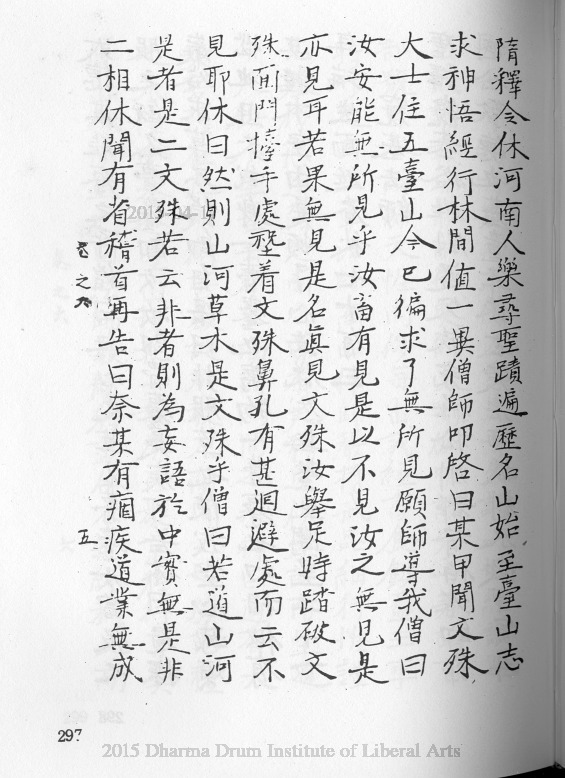 隋釋令休河南人樂尋聖蹟遍歷名山始至臺山志
求神悟經行林間值一異僧師叩啓曰某甲聞文殊
大士住五臺山今已徧求了無所見願師導我僧曰
汝安能無所見乎汝畜有見是以不見汝之無見是
亦見耳若果無見是名真見文殊汝舉足時踏破文
殊面門擡手處㘅着文殊鼻孔有甚迴避處而云不
見耶休曰然則山河草木是文殊乎僧曰若道山河
是者是二文殊若云非者則為妄語於中實無是非
二相休聞有省稽首再告曰奈某有痼疾道業無成
卷之六
五
297
2015-04-1
2015 Dharma Drum Institute of Liberal Arts